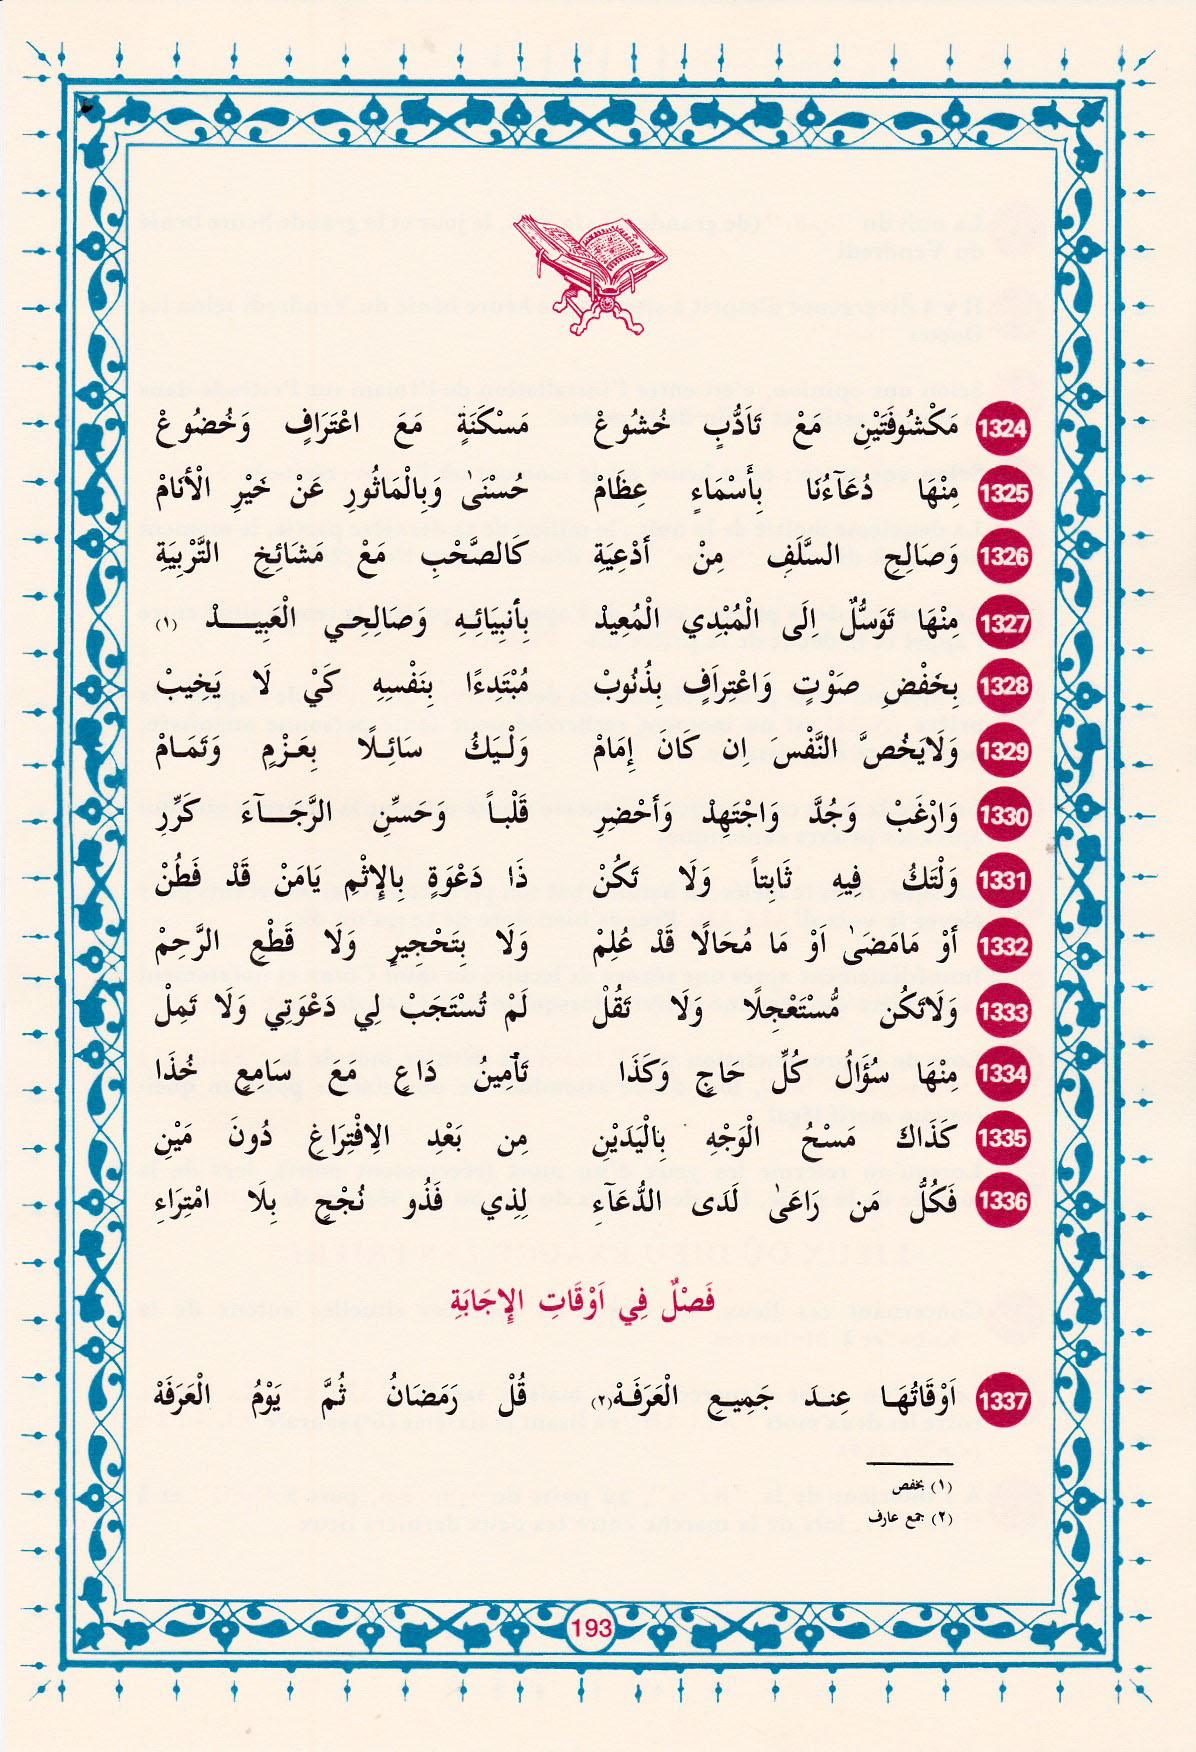 1324 مَكْشُوفَتَيْنِ مَعْ تَاَدُّبٍ خُشُوعْ مَسْكَنَةٍ مَعَ اعْتَرَافٍ وَخُضُوعْ
1325 مِنْهَا دُعَآءُنَا بِأَسْمَاءٍ عِظَامْ حُسْنَىٰ وَبِالْمَاثُورِ عَنْ خَيْرِ الْأنَامْ
1326 وَصَالِحِ السَّلَفِ مِنْ أدْعِيَةِ كَالصَّحْبِ مَعْ مَشَائِخِ التَّرْبِيَةِ
1327 مِنْهَا تَوَسُّلٌ اِلَى الْمُبْدِي الْمُعِيدْ بِأنبِيَائِهِ وَصَالِحِي الْعَبِيدْ (١)
1328 بِخَفْضِ صَوْتٍ وَاعْتِرَافٍ بِذُنُوبْ مُبْتَدِءًا بِنَفْسِهِ كَيْ لَا يَخِيبْ
1329 وَلَايَخُصَّ النَّفْسَ اِن كَانَ إِمَامْ وَلْيَكُ سَائِلًا بِعَزْمٍ وَتَمَامْ
1330 وَارْغَبْ وَجُدَّ وَاجْتَهِدْ وَأحْضِرِ قَلْباً وَحَسِّنِ الرَّجَآءَ كَرِّرِ
1331 وَلْتَكُ فِيهِ ثَابِتاً وَلَا تَكُنْ ذَا دَعْوَةٍ بِالإِثْمِ يَامَنْ قَدْ فَطُنْ
1332 أوْ مَامَضَىٰ اَوْ مَا مُحَالًا قَدْ عُلِمْ وَلَا بِتَحْجِيرٍ وَلَا قَطْعِ الرَّحِمْ
1333 وَلَاتَكُن مُّسْتَعْجِلًا وَلَا تَقُلْ لَمْ تُسْتَجَبْ لِي دَعْوَتِي وَلَا تَمِلْ
1334 مِنْهَا سُؤَالُ كُلِّ حَاجٍ وَكَذَا تَآمِينُ دَاعٍ مَعَ سَامِعٍ خُذَا
1335 كَذَاكَ مَسْحُ الْوَجْهِ بِالْيَدَيْنِ مِن بَعْدِ الاِفْتِرَاغِ دُونَ مَيْنِ
1336 فَكُلُّ مَن رَاعَىٰ لَدَى الدُّعَآءِ لِذِي فَذُو نُجْحٍ بِلَا امْتِرَاءِ
فَصْلٌ فِي اَوْقَاتِ الإِجَابَةِ
1337 اَوْقَاتُهَا عِندَ جَمِيعِ الْعَرَفَهْ (٢) قُلْ رَمَضَانُ ثُمَّ يَوْمُ الْعَرَفَهْ
(١) بخفض
(٢) جمع عارف
193